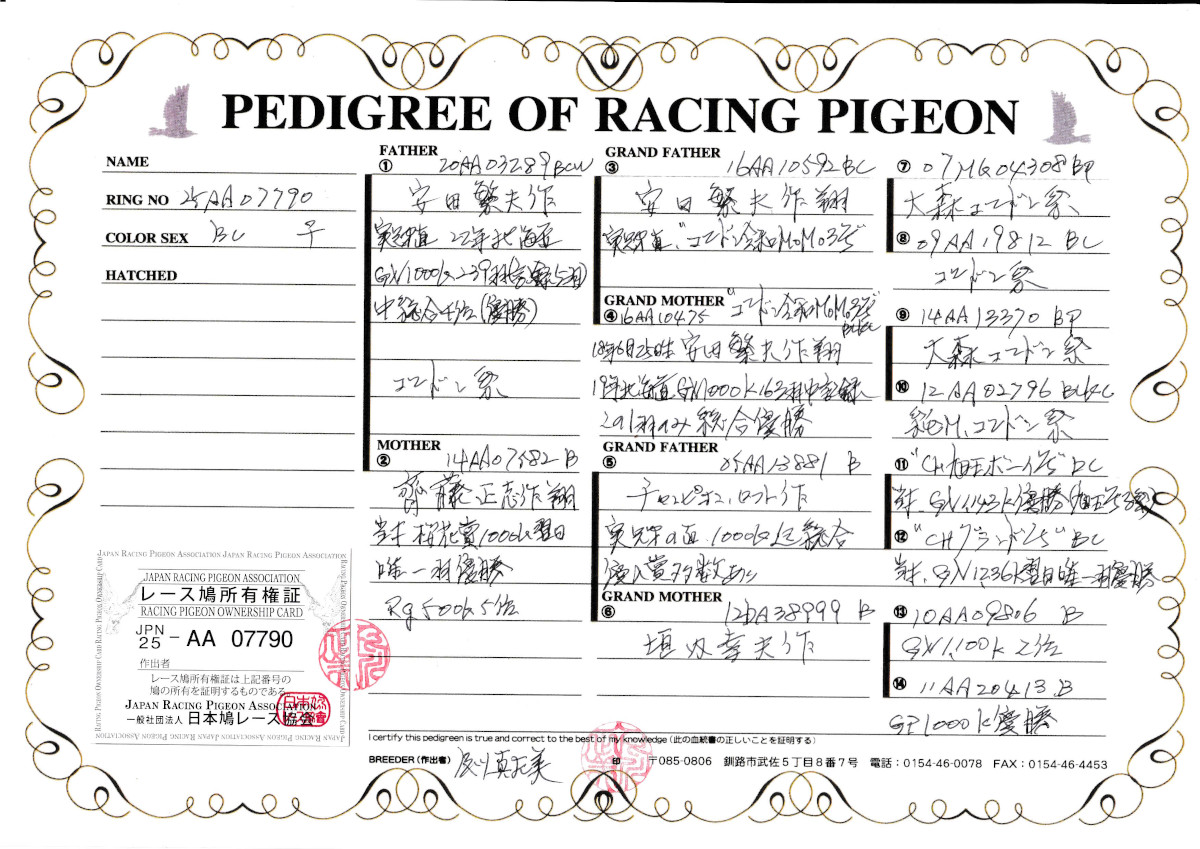 PEDIGREE OF RACING PIGEON
NAME
RING NO 25AA07790
COLOR SEX BC ♀
HATCHED
FATHER
① 20AA03289 BCW
安田繁夫作
22年北海道
GN1000K 239羽
中総合 位(優勝)
ゴードン系
MOTHER
② 14AA07582 B
齋藤正志作翔
桜花賞1000K翌日
唯一羽優勝
Rg500K5位
GRAND FATHER
③ 16AA10592 BC
安田繁夫作翔
"ゴードン令和MoMo3号"
GRAND MOTHER "ゴードン令和MoMo3号"
④ 16AA10475
18年6月25日生 安田繁夫作翔
19年北海道GN1000K163羽中記録
の1羽のみ総合優勝
GRAND FATHER
⑤ 05AA13881 B
チャンピオンロフト作
の直 1000K 総合
入賞多数
GRAND MOTHER
⑥ 12DA38999 B
垣内幸夫作
⑦ 07MG04308 BP
大森ゴードン系
⑧ 09AA19812 BC
ゴードン系
⑨ 14AA13370 BP
大森ゴードン系
⑩ 12AA02796 BLKC
ゴードン系
⑪ "CH旭王ボーイ号" DC
GN1143K優勝
⑫ "CHグランド号" BC
GN1236K翌日唯一羽優勝
⑬ 10AA09806 B
GN1,100K 2位
⑭ 11AA20413 B
GP1000K優勝
JAPAN RACING PIGEON ASSOCIATION JAPAN RACING PIGEON ASSOCIATION
RACING PIGEON OWNERSHIP CARD
JAPAN RACING PIGEON ASSOCIATION
レース鳩所有権証
RACING PIGEON OWNERSHIP CARD
JPN
25 - AA 07790
作出者
レース鳩所有権証は上記番号の
鳩の所有を証明するものである
JAPAN RACING PIGEON ASSOCIATION
一般社団法人 日本鳩レース協会
I certify this pedigreen is true and correct to the best of my knowledge (此の血統書の正しいことを証明する)
BREEDER (作出者) 印 〒085-0806 釧路市武佐5丁目8番7号 電話:0154-46-0078 FAX:0154-46-4453